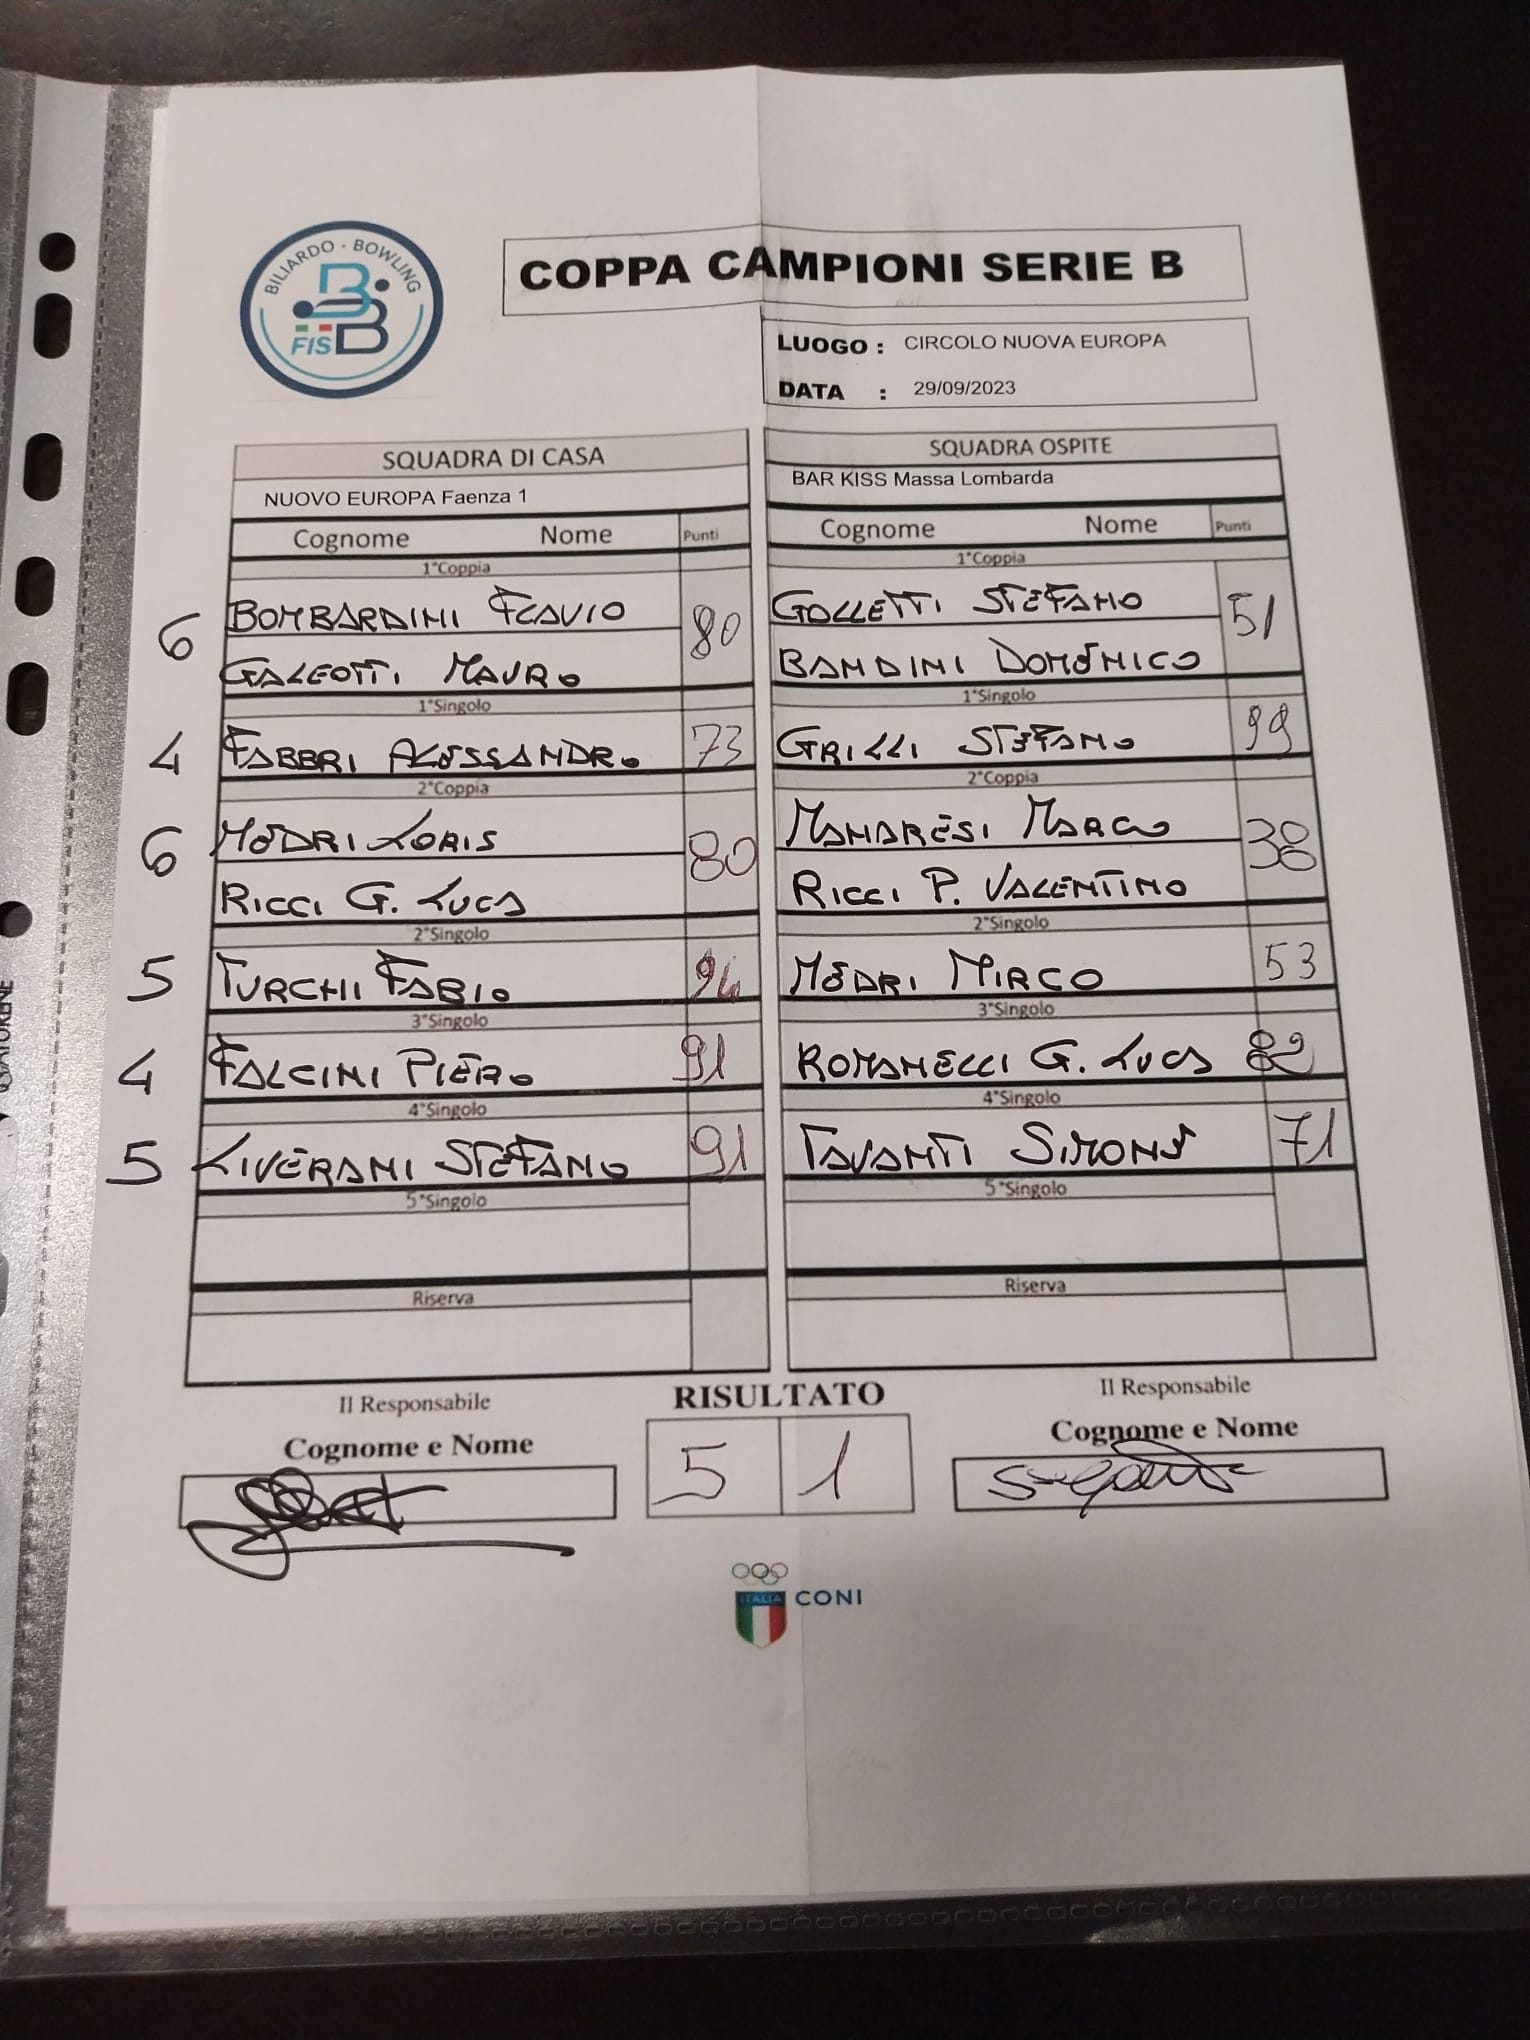 BILIARDO - BOWLING
FISBB
COPPA CAMPIONI SERIE B
LUOGO : CIRCOLO NUOVA EUROPA
DATA : 29/09/2023
SQUADRA DI CASA
NUOVO EUROPA Faenza 1
Cognome Nome Punti
1°Coppia
6 BOMBARDINI FLAVIO 80
GALEOTTI MAURO
1°Singolo
4 FABBRI ALESSANDRO 73
2°Coppia
6 MEDRI LORIS 80
RICCI G. LUCA
2°Singolo
5 TURCHI FABIO 94
3°Singolo
4 FALCINI PIERO 91
4°Singolo
5 LIVERANI STEFANO 91
5°Singolo
Riserva
SQUADRA OSPITE
BAR KISS Massa Lombarda
Cognome Nome Punti
1°Coppia
GOLLETTI STEFANO 51
BANDINI DOMENICO
1°Singolo
GRILLI STEFANO 99
2°Coppia
MANARESI MARCO 38
RICCI P. VALENTINO
2°Singolo
MEDRI MIRCO 53
3°Singolo
ROMANELLI G. LUCA 82
4°Singolo
TAVANTI SIMONE 71
5°Singolo
Riserva
Il Responsabile
Cognome e Nome
RISULTATO
5 1
Il Responsabile
Cognome e Nome
ITALIA CONI